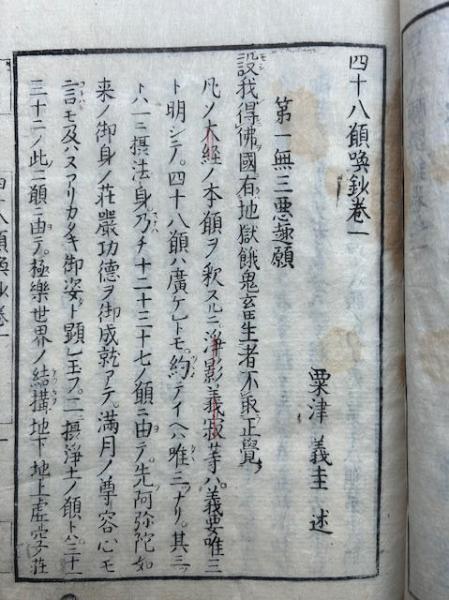 四十八願喚鈔卷一
粟津義圭述
第一無三惡趣願
設我得佛國有地獄餓鬼畜生者不取正覺
凡ソ大経ノ本願ヲ釈スルニ淨影義寂等ハ義要唯三
ト明シテ。四十八願ハ廣ケレトモ。約テイヘハ唯三ツナリ。其三ツ
ト八一ニ摂法身乃チ十二十三十七ノ願ニ由テ。先阿弥陀如
来ノ御身ノ荘嚴功德ヲ御成就アテ。満月ノ尊容心モ
言モ及ハスツリカタキ御姿ト顕レ玉フ。二摂淨土ノ願トハ三十一
三十二ノ此二願ニ由テ。極樂世界ノ結構地下地上虚空ノ荘
四十八願喚鈔卷一